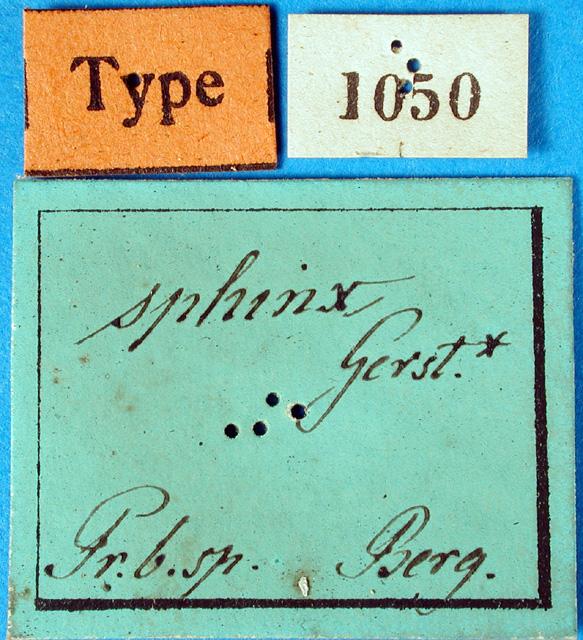 Type
1050
sphinx
Gerst.*
Pr. b. sp. Berg.